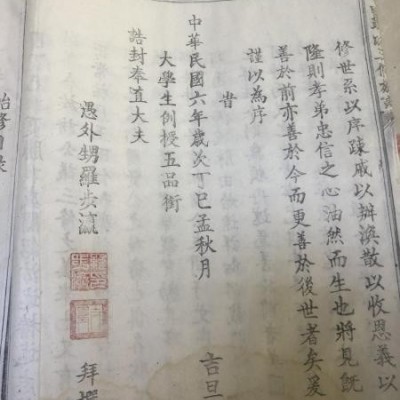 修世系以序疎戚以辦渙散以收恩義以
隆則孝弟忠信之心油然而生也將見既
善於前亦善於今而更善於後世者矣爰
謹以為序
旹
中華民國六年歲次丁巳孟秋月 吉旦
大學生例授五品銜
誥封奉直大夫
愚外甥羅步瀛 拜撰